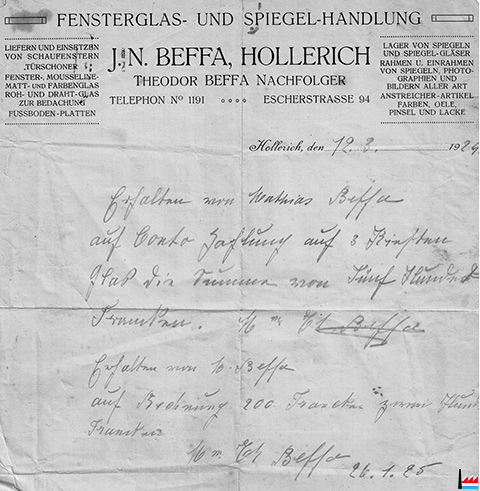 FENSTERGLAS- UND SPIEGEL-HANDLUNG
LIEFERN UND EINSETZEN
VON SCHAUFENSTERN
TÜRSCHONER
FENSTER-, MOUSSELINE-
MATT- UND FARBENGLAS
ROH- UND DRAHT-GLAS
ZUR BEDACHUNG
FUSSBODEN-PLATTEN
J. N. BEFFA, HOLLERICH
THEODOR BEFFA NACHFOLGER
TELEPHON No 1191 ESCHERSTRASSE 94
LAGER VON SPIEGELN
UND SPIEGEL-GLÄSER
RAHMEN U. EINRAHMEN
VON SPIEGELN, PHOTO-
GRAPHIEN UND
BILDERN ALLER ART
ANSTREICHER-ARTIKEL
FARBEN, OELE,
PINSEL UND LACKE
Hollerich, den 12. 3. 1924
Erhalten von Mathias Beffa
auf Conto Zahlung auf 3 Kisten
Glas die Summe von Fünf Hundert
Francken. Th Beffa
Erhalten von M. Beffa
auf 200 Francken zwei Hund
Francken
Th Beffa 26.1.25